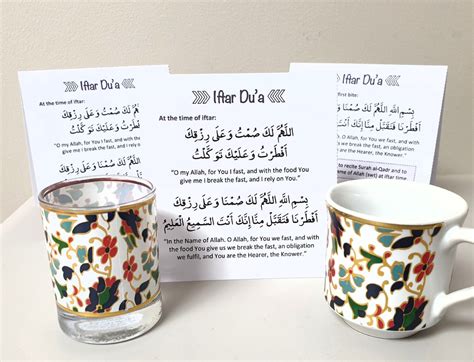 Iftar Du'a
At the time of iftar:
اَللّٰهُمَّ لَكَ صُمْتُ وَ عَلَى رِزْقِكَ
"O my Allah, for You I fast, and with the
give me I break the fast, and I rely
Iftar Du'a
At the time of iftar:
اَللّٰهُمَّ لَكَ صُمْتُ وَ عَلَى رِزْقِكَ
أَفْطَرْتُ وَ عَلَيْكَ تَوَكَّلْتُ
"O my Allah, for You I fast, and with the food You
give me I break the fast, and I rely on You."
بِسْمِ اللهِ اَللّٰهُمَّ لَكَ صُمْنَا وَ عَلَى رِزْقِكَ
أَفْطَرْنَا فَتَقَبَّلْ مِنَّا إِنَّكَ أَنْتَ السَّمِيعُ الْعَلِيمُ
"In the Name of Allah. O Allah, for you We fast, and with
the food You give us we break the fast, an obligation
we fulfil, and You are the Hearer, the Knower."
Iftar Du'a
first bite:
بِسْمِ اللهِ اَللّٰهُمَّ لَكَ صُمْنَا وَ عَلَى
أَفْطَرْنَا فَتَقَبَّلْ مِنَّا إِنَّكَ أَنْتَ
O Allah, for You we
break the fast, an obligation
Hearer, the Knower."
to recite Surah al-Qadr and to
name of Allah (swt) at iftar time